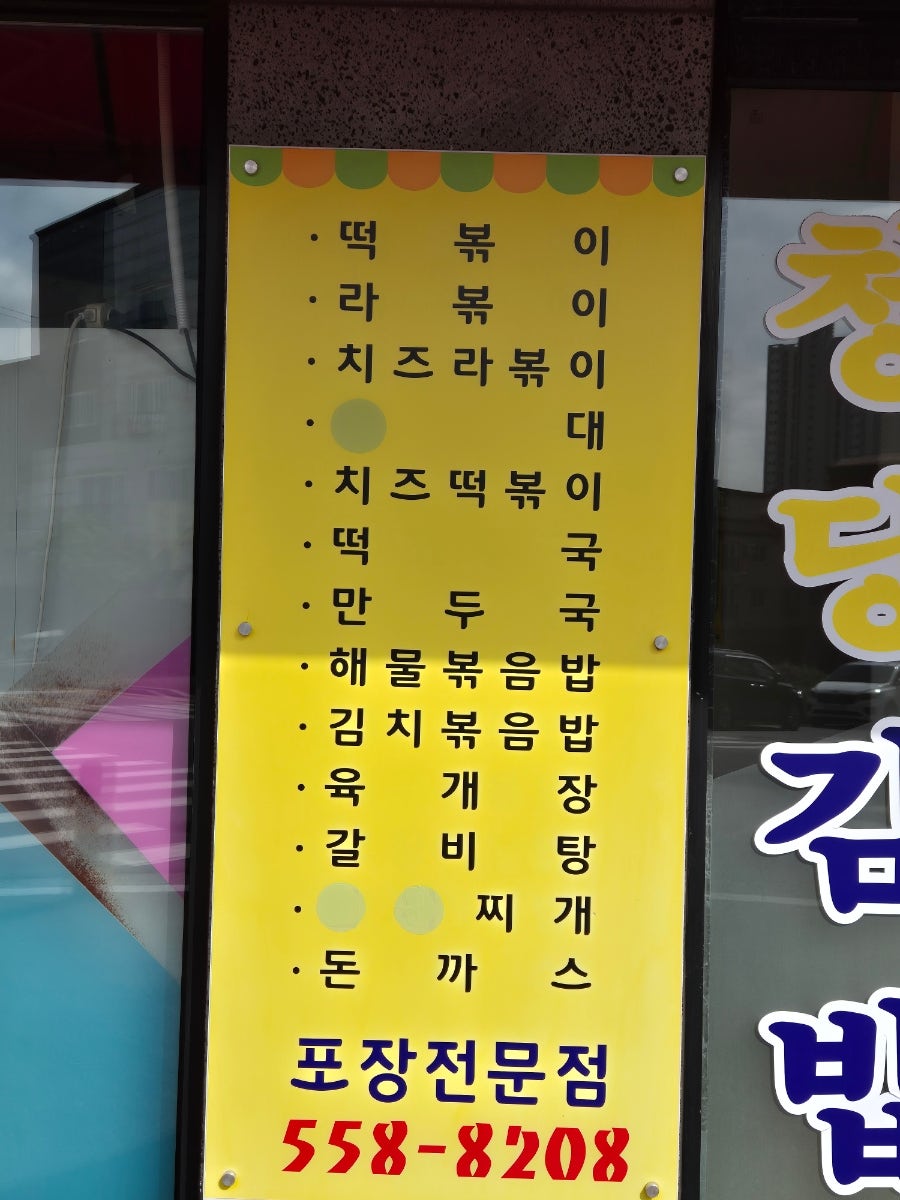 · 떡 볶 이
· 라 볶 이
· 치즈라볶이
· 대
· 치즈떡볶이
· 떡 국
· 만 두 국
· 해물볶음밥
· 김치볶음밥
· 육 개 장
· 갈 비 탕
· 찌 개
· 돈 까 스
포장전문점
558-8208
김
밥